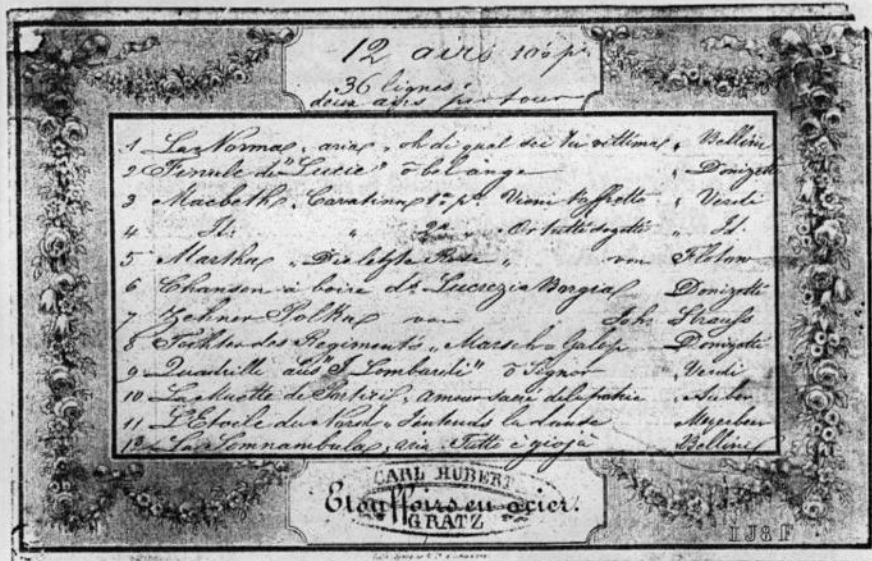 12 airs
36 lignes
deux airs par tour
1 La Norma, aria, oh di qual sei tu vittima, Bellini
2 Finale de "Lucie" ō bel ange, Donizetti
3 Macbeth, Cavatina 1a p. Vieni t'affretta, Verdi
4 Id. " 2a " Or tutti sogetti " Id.
5 Martha, "Die letzte Rose" von Flotow
6 Chanson à boire de Lucrezia Borgia Donizetti
7 Polka von Joh. Strauss
8 Tochter des Regiments, Marsch Galop Donizetti
9 Quadrille aus "I Lombardi" ō Signor, Verdi
10 La Muette de Portici, amour sacré de la patrie, Auber
11 L'Etoile du Nord, J'entends la danse Meyerbeer
12 La Somnambula, aria Tutto è gioja Bellini
CARL HUBERT
Etouffoirs en acier.
GRATZ
1J8F